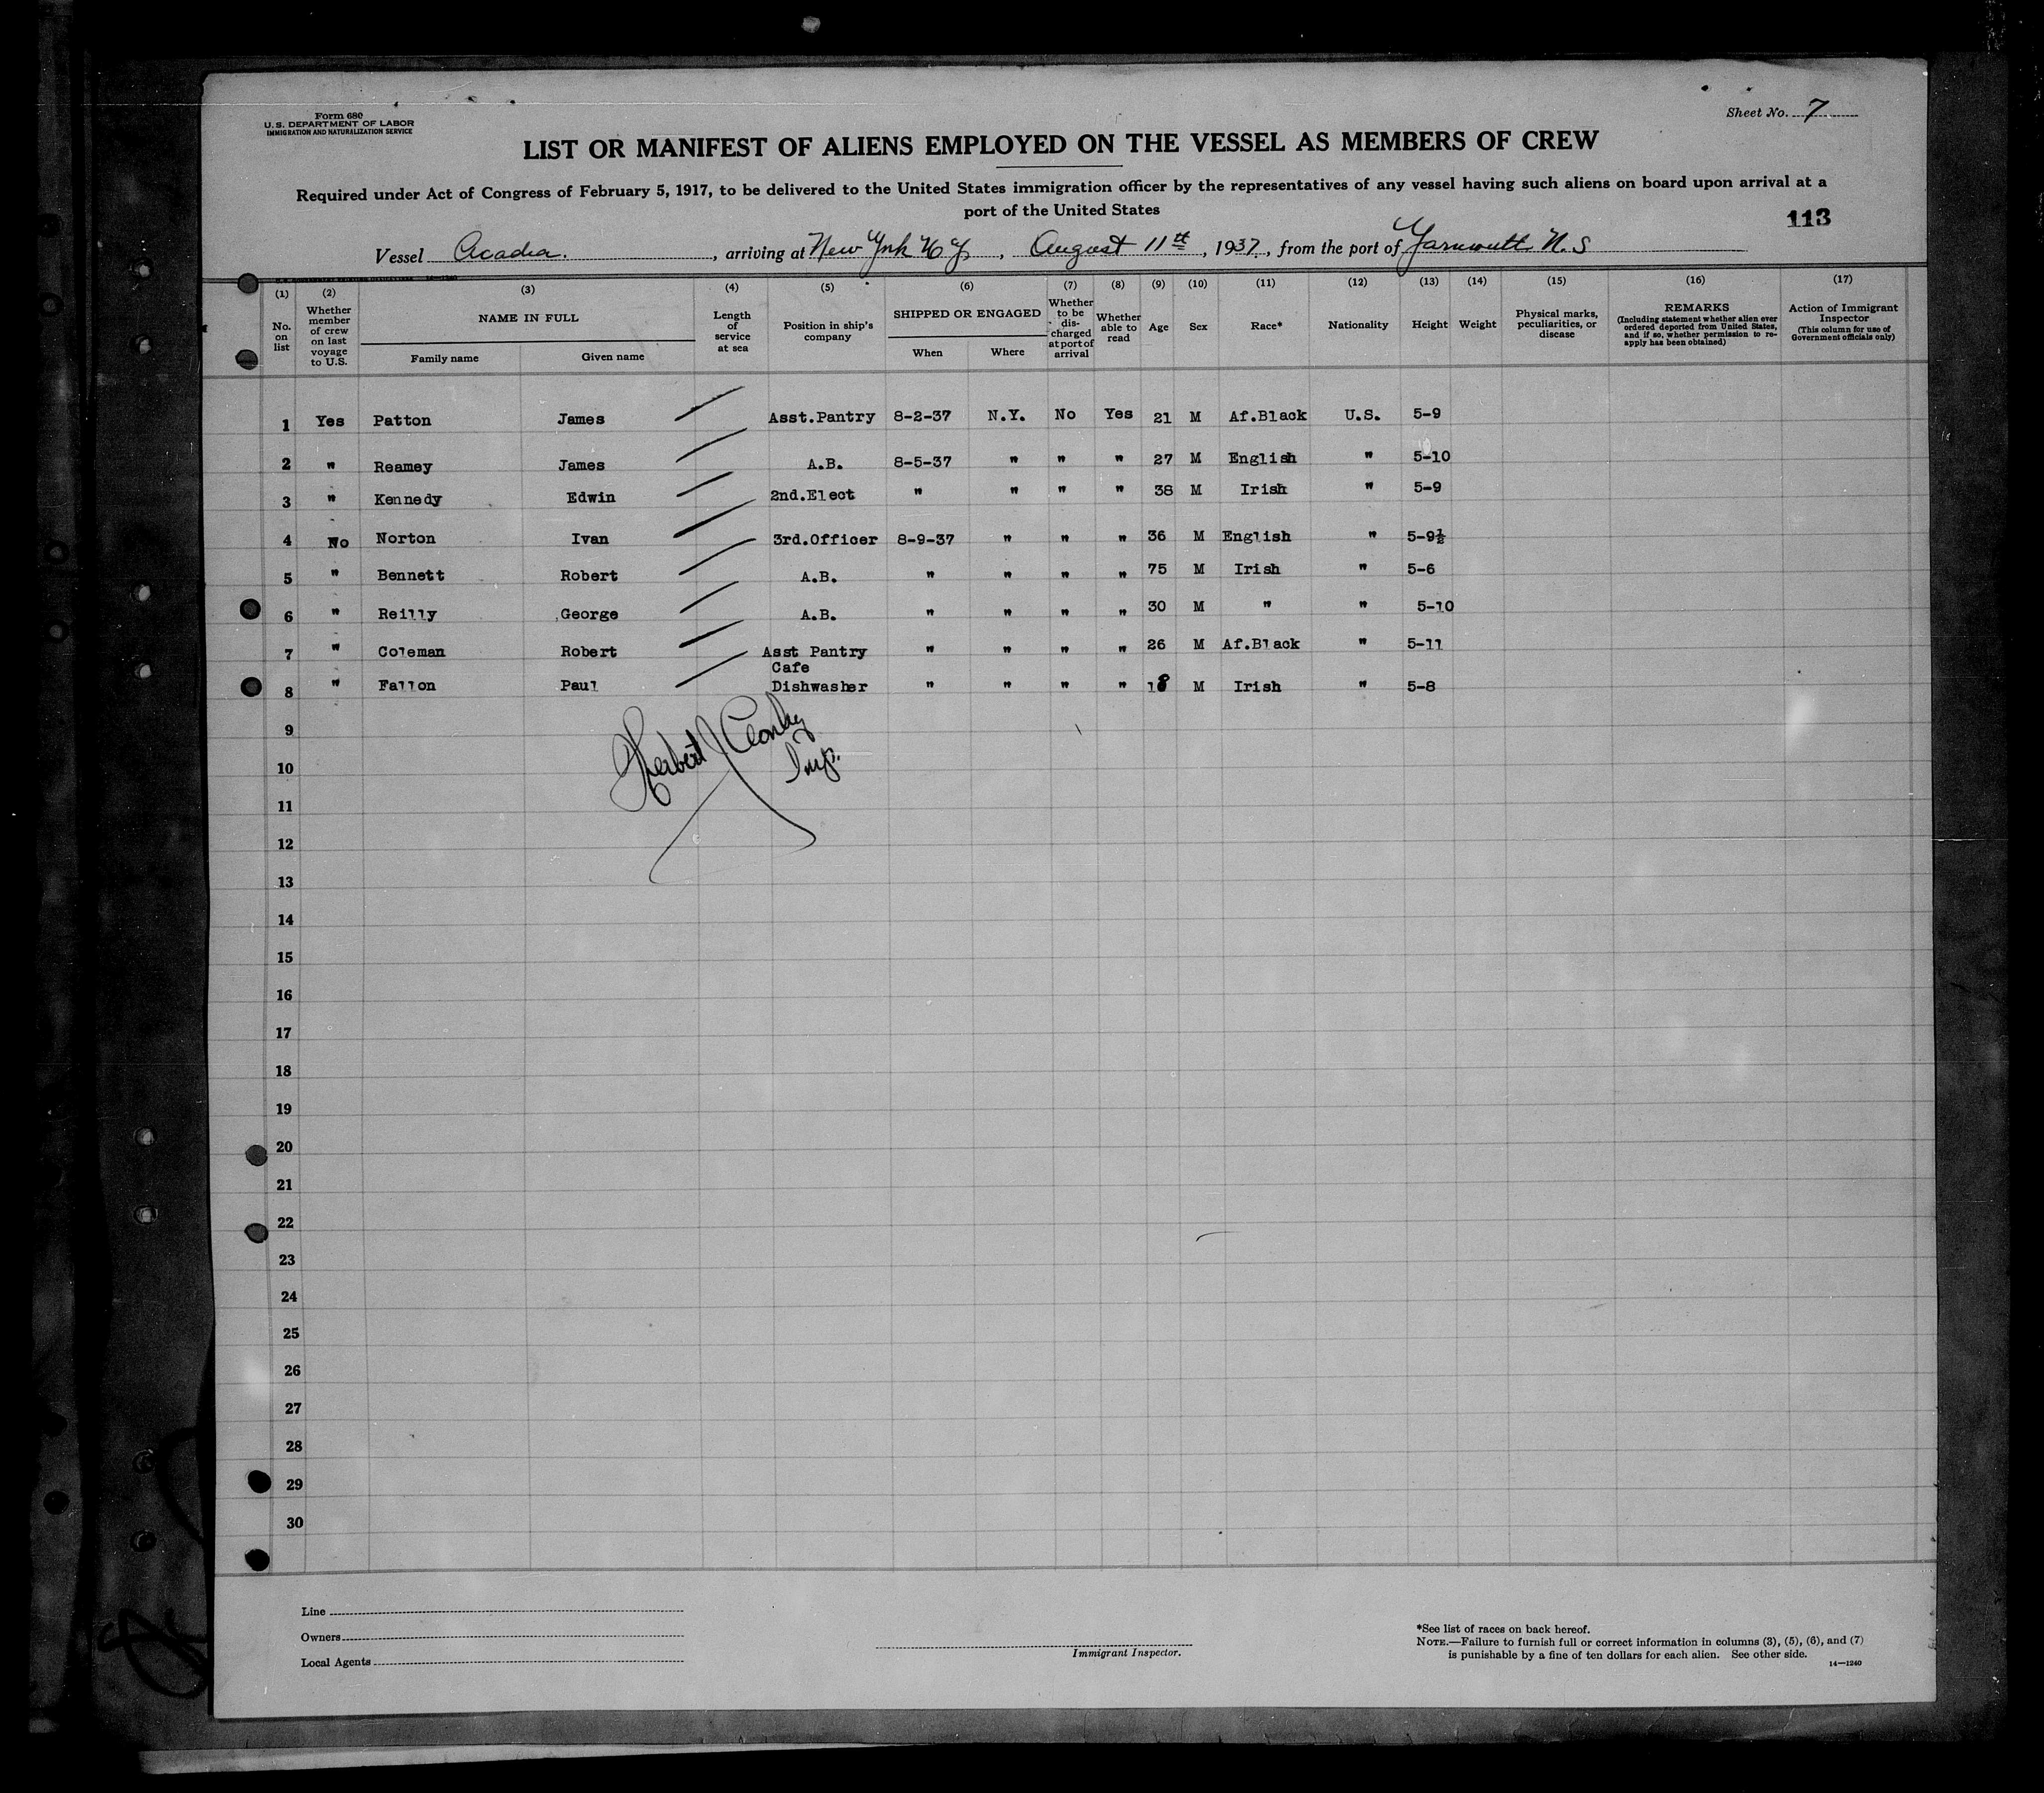 Form 680
U. S. DEPARTMENT OF LABOR
IMMIGRATION AND NATURALIZATION SERVICE
Sheet No. 7
LIST OR MANIFEST OF ALIENS EMPLOYED ON THE VESSEL AS MEMBERS OF CREW
Required under Act of Congress of February 5, 1917, to be delivered to the United States immigration officer by the representatives of any vessel having such aliens on board upon arrival at a
port of the United States
113
Vessel Acadia. , arriving at New York N Y , August 11th , 1937 , from the port of Yarmouth N. S
(1) (2) (3) (4) (5) (6) (7) (8) (9) (10) (11) (12) (13) (14) (15) (16) (17)
No. on list
Whether member of crew on last voyage to U.S.
NAME IN FULL
Family name Given name
Length of service at sea
Position in ship's company
SHIPPED OR ENGAGED
When Where
Whether to be discharged at port of arrival
Whether able to read
Age
Sex
Race*
Nationality
Height
Weight
Physical marks, peculiarities, or disease
REMARKS
(Including statement whether alien ever ordered deported from United States, and if so, whether permission to re-apply has been obtained)
Action of Immigrant Inspector
(This column for use of Government officials only)
1 Yes Patton James Asst.Pantry 8-2-37 N.Y. No Yes 21 M Af.Black U.S. 5-9
2 " Reamey James A.B. 8-5-37 " " " 27 M English " 5-10
3 " Kennedy Edwin 2nd.Elect " " " " 38 M Irish " 5-9
4 No Norton Ivan 3rd.Officer 8-9-37 " " " 36 M English " 5-9½
5 " Bennett Robert A.B. " " " " 75 M Irish " 5-6
6 " Reilly George A.B. " " " " 30 M " " 5-10
7 " Coleman Robert Asst Pantry " " " " 26 M Af.Black " 5-11
Cafe
8 " Fallon Paul Dishwasher " " " " 18 M Irish " 5-8
Herbert J
Insp.
9
10
11
12
13
14
15
16
17
18
19
20
21
22
23
24
25
26
27
28
29
30
Line
Owners
Local Agents
Immigrant Inspector.
*See list of races on back hereof.
NOTE.—Failure to furnish full or correct information in columns (3), (5), (6), and (7)
is punishable by a fine of ten dollars for each alien. See other side.
14—1240